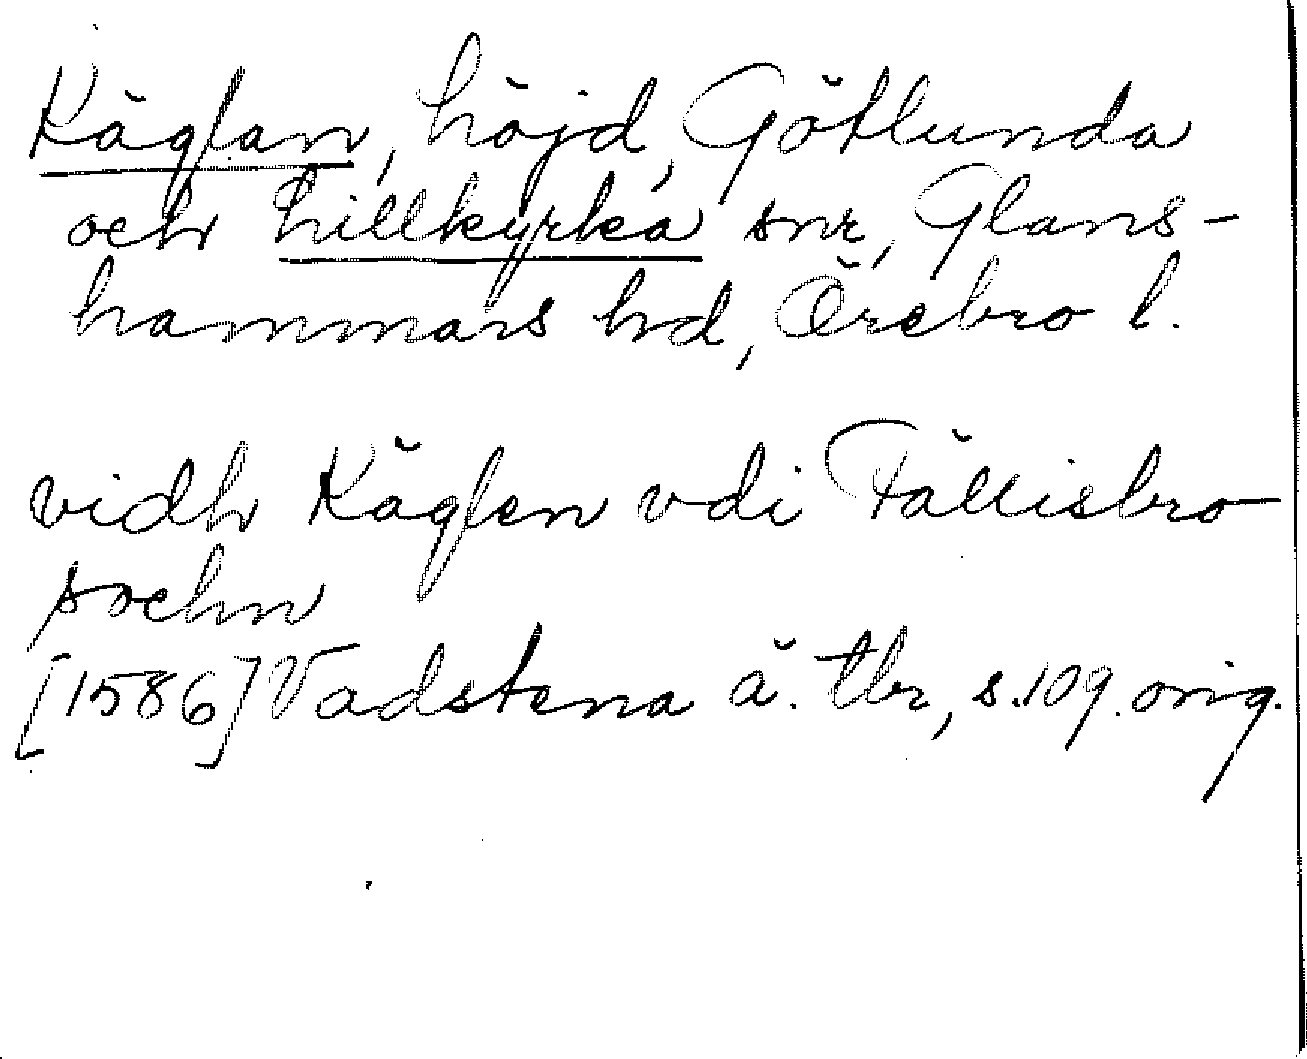 Käglan, höjd, Götlunda
och Lillkyrka snr, Glans-
hammars hd, Örebro l.
vidh Käglen vdi Fällisbro
sochn
[1586] Vadstena ä. tbr, s. 109. orig.